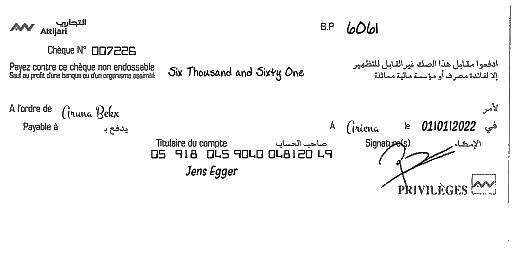 التجاري
Attijari
B.P 6061
Chèque N° 007226
Payez contre ce chèque non endossable
Sauf au profit d'une banque ou d'un organisme assimilé
Six Thousand and Sixty One
ادفعوا مقابل هذا الصك غير القابل للتظهير
إلا لفائدة مصرف أو مؤسسة مالية مماثلة
A l'ordre de Gruna Bekx
لأمر
Payable à يدفع بـ
A Griena le 01/01/2022 في
Titulaire du compte صاحب الحساب
Signature(s) الإمضاء
05 918 045 9040 048120 49
Jens Egger
PRIVILÈGES